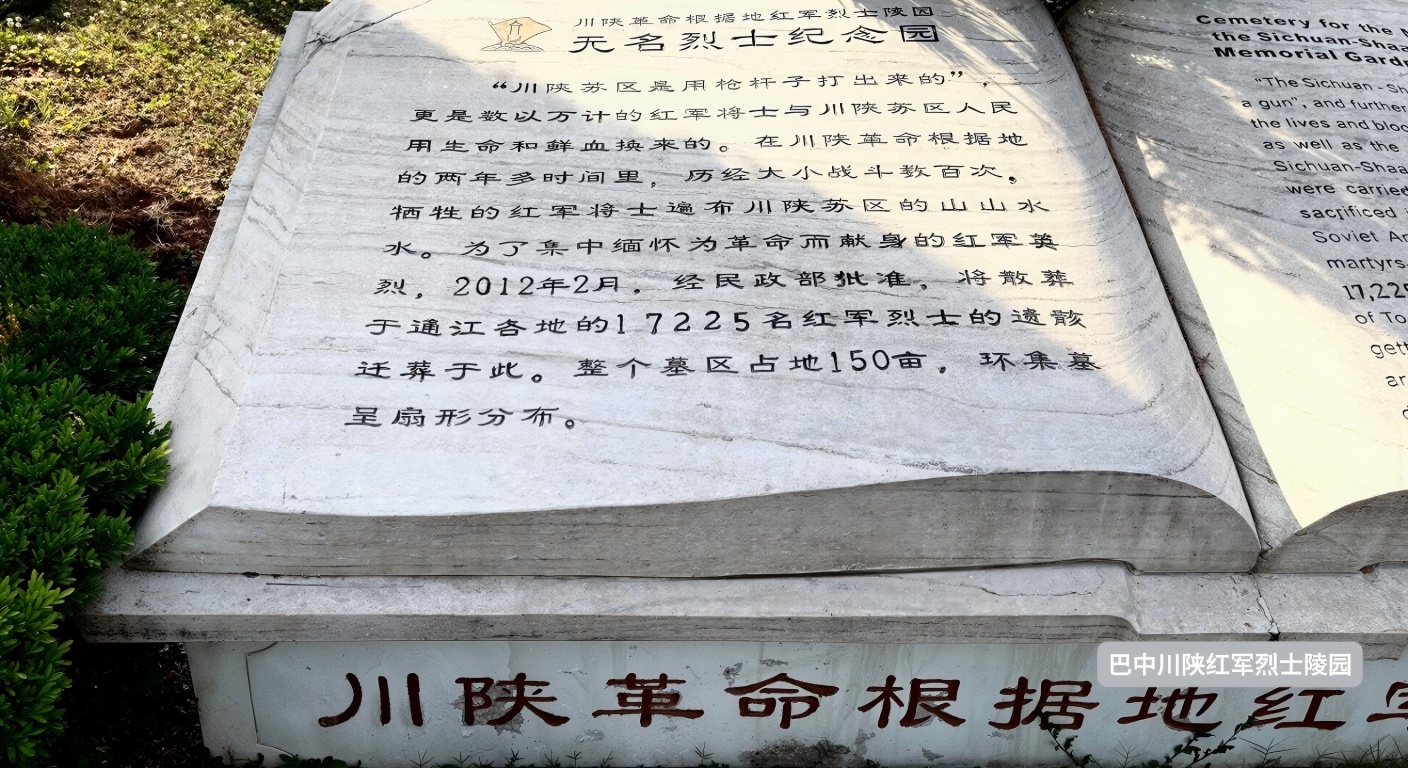 川陕革命根据地红军烈士陵园
无名烈士纪念园
“川陕苏区是用枪杆子打出来的”，
更是数以万计的红军将士与川陕苏区人民
用生命和鲜血换来的。在川陕革命根据地
的两年多时间里，历经大小战斗数百次。
牺牲的红军将士遍布川陕苏区的山山水
水。为了集中缅怀为革命而献身的红军英
烈，2012年2月，经民政部批准，将散葬
于通江各地的17225名红军烈士的遗骸
迁葬于此。整个墓区占地150亩，环集墓
呈扇形分布。
Cemetery for the
the Sichuan-Shaa
Memorial Gard
“The Sichuan-Sh
a gun”, and further
the lives and bloo
as well as the
Sichuan-Shaa
were carried
sacrificed
Soviet Ar
martyrs.
17,225
of To
gett
ar
川陕革命根据地红军
巴中川陕红军烈士陵园